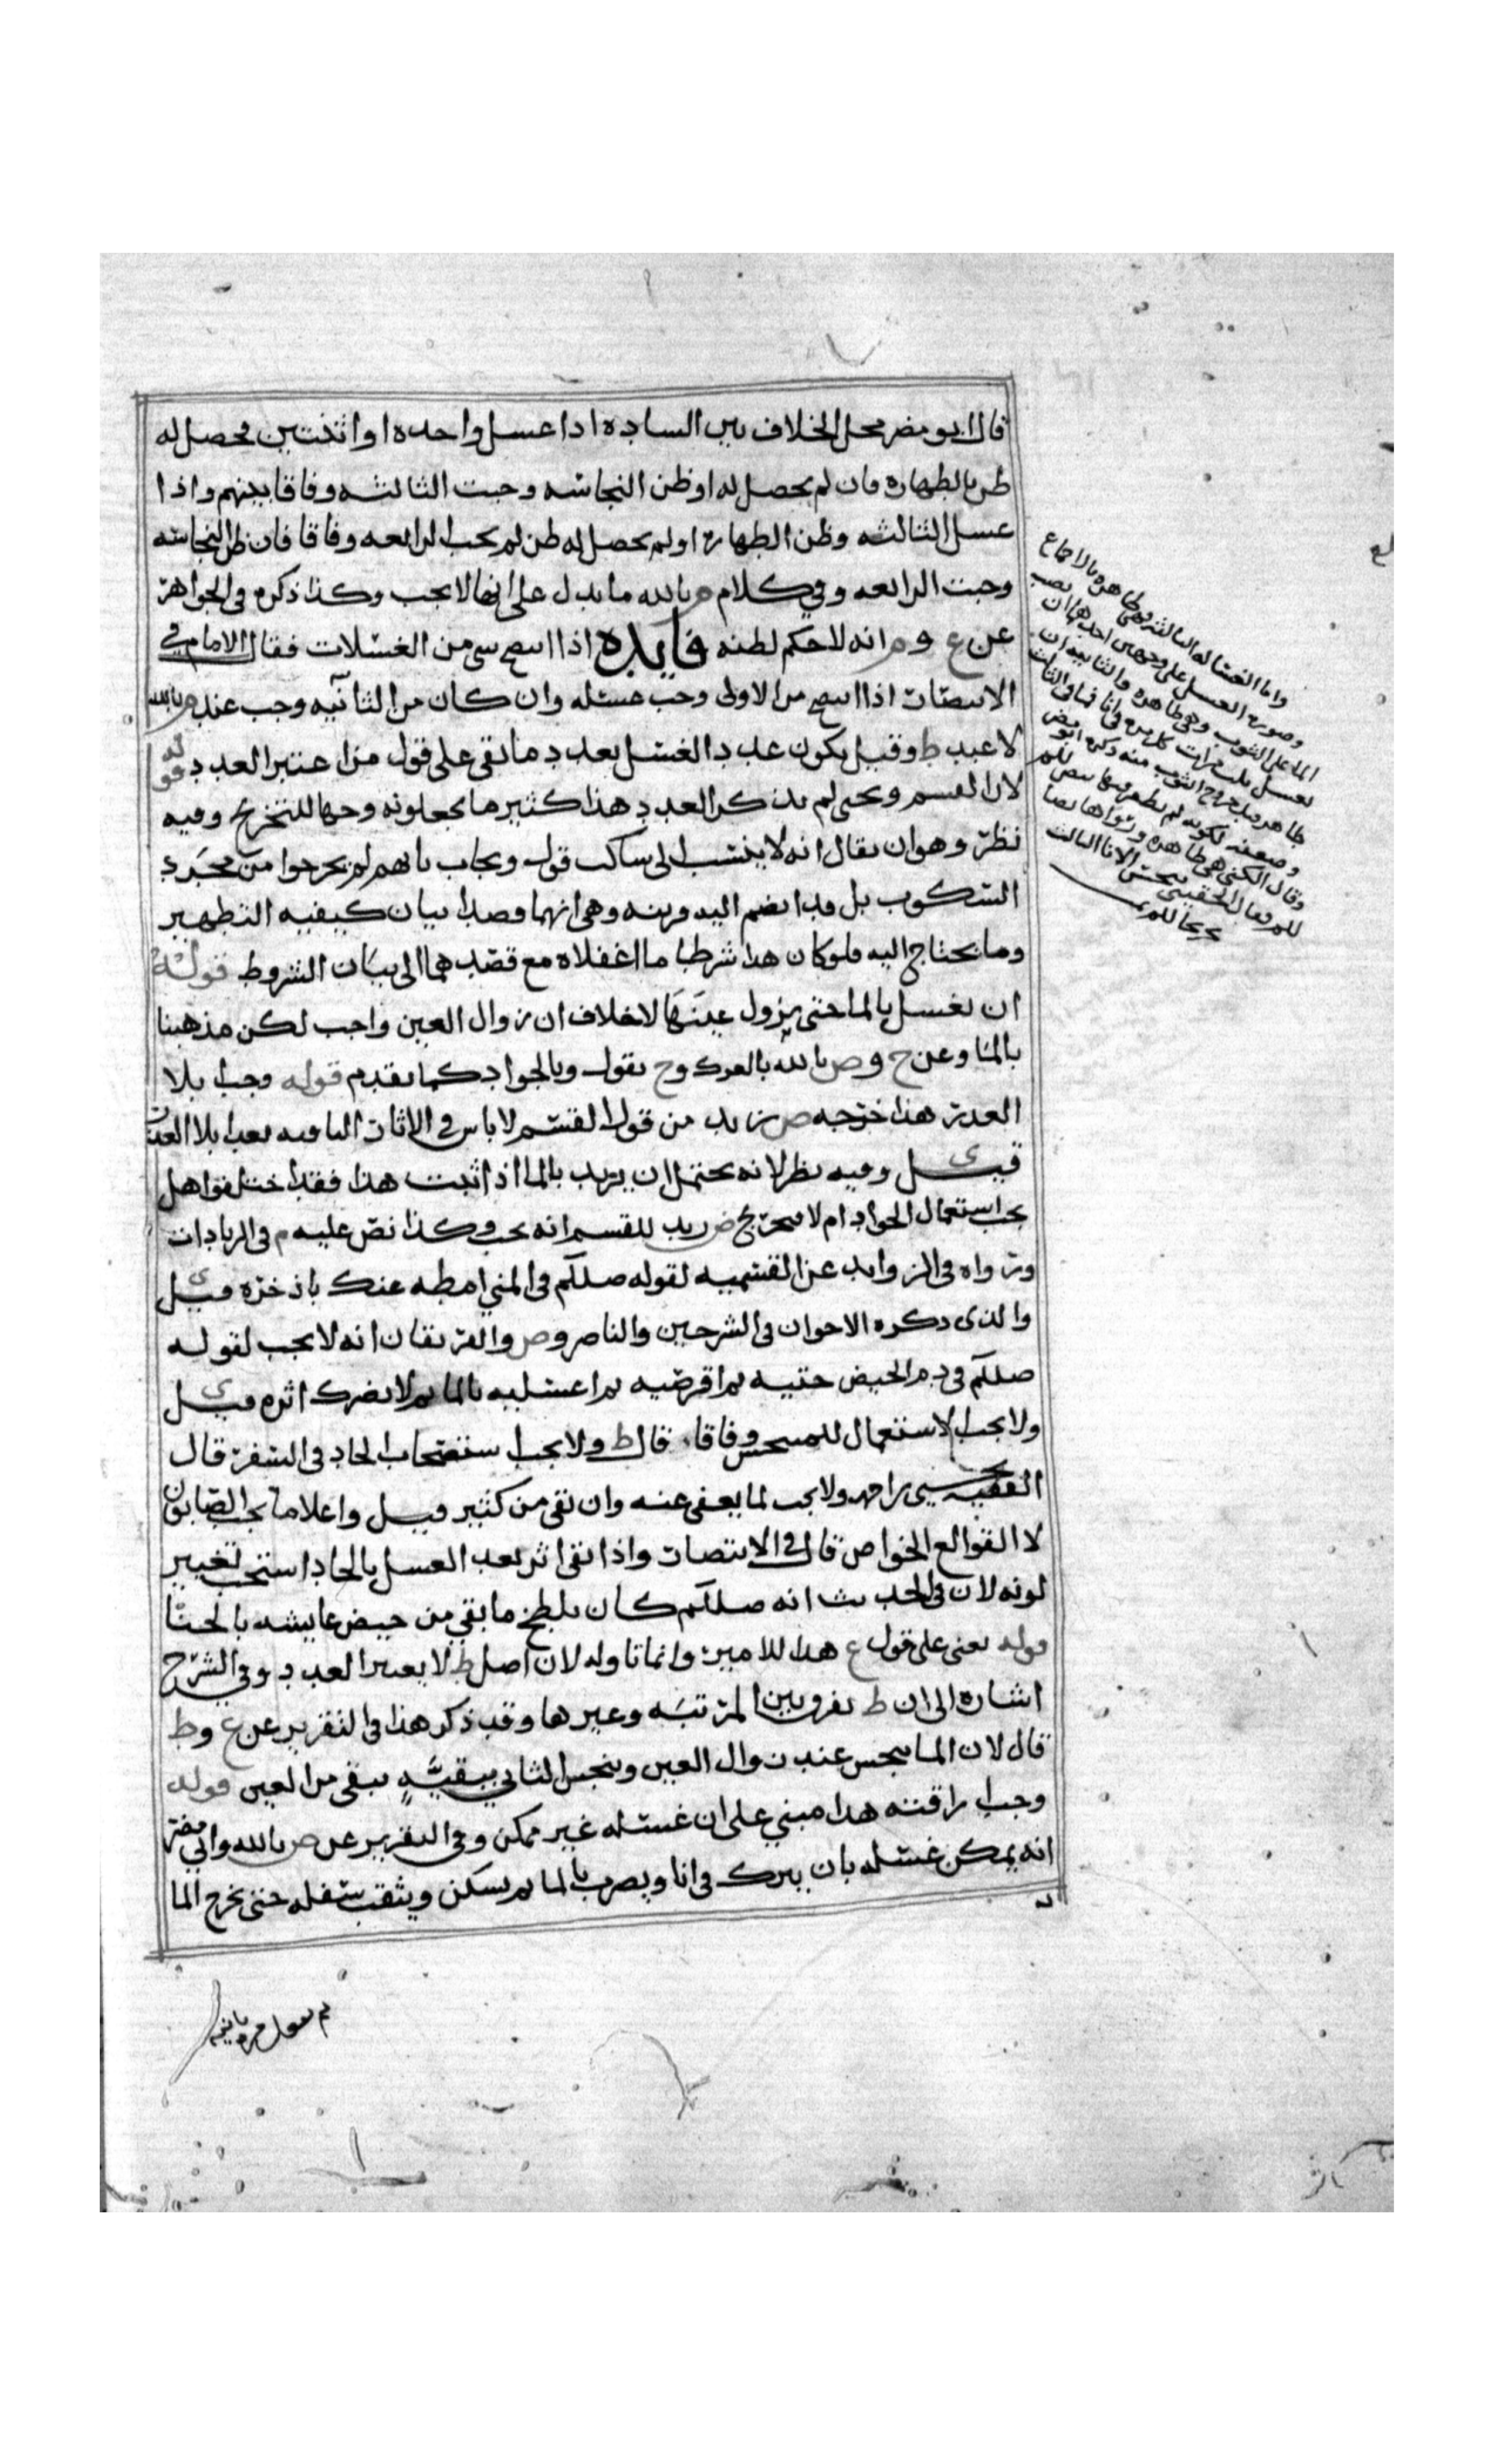 قال ابو مضر محل الخلاف بين الساده اذا غسل واحده او اثنتين فحصل له
ظن بالطهاره فان لم يحصل له او ظن النجاسه وجبت الثالثه وفاقا بينهم واذا
غسل الثالثه وظن الطهارة او لم يحصل له ظن لم يجب الرابعه وفاقا فان ظن النجاسه
وجبت الرابعه وفي كلام م بالله ما يدل على انها لا يجب وكذا ذكره في الجواهر
عن ع و م انه لا حكم لظنه فايده اذا انتضح شي من الغسلات فقال الامام في
الانتصار اذا انتضح من الاولى وجب غسله وان كان من الثانيه وجب عند م بالله
لا عند ط وقيل يكون عدد الغسل بعدد ما بقي على قول من اعتبر العدد قوله
لان القسم ويحيى لم يذكرا العدد هذا كثير ما يجعلونه وجها للتخريج وفيه
نظر وهو ان يقال انه لا ينسب الى ساكت قول ويجاب بانهم لم يخرجوا من مجرد
السكوت بل قد انضم اليه قرينه وهي انهما قصدا بيان كيفيه التطهير
وما يحتاج اليه فلو كان هذا شرطا ما اغفلاه مع قصدهما الى بيان الشروط قوله
ان يغسل بالما حتى يزول عينها لا خلاف ان زوال العين واجب لكن مذهبنا
بالما وعن ح و ص بالله بالفرك وح يقول وبالجواد كما تقدم قوله وجب بلا
العدد هذا خرجه ص زيد من قول القسم لا باس في الاثار الباقيه بعد ابلا العذر
قيل ي وفيه نظر لانه يحتمل ان يريد بالما اذا ثبت هذا فقد اختلفوا هل
يجب استعمال الحواد ام لا فخرج ض زيد للقسم انه يجب وكذا نص عليه م في الزيادات
ورواه في الزوايد عن القسميه لقوله صللم في المني امطه عنك باذخره قيل ي
والذي ذكره الاخوان في الشرحين والناصر و ص والفريقان انه لا يجب لقوله
صللم في دم الحيض حتيه ثم اقرصيه ثم اغسليه بالما ثم لا يضرك اثره قيل ي
ولا يجب الاستعمال للمستحس وفاقا قال ط ولا يجب استصحاب الحاد في السفر قال
الفقيه يحيى بن احمد ولا يجب لما يعفى عنه وان بقي من كثير قيل واعلا ما يجب الصابون
لا القوالع الخواص قال في الانتصار واذا بقي اثر بعد الغسل بالحاد استحب تغيير
لونه لان في الحديث انه صللم كان يلطخ ما بقي من حيض عايشه بالحنا
قوله يعني على قول ع هذا للامير وانما تاوله لان اصل ط لا يعتبر العدد وفي الشرح
اشاره الى ان ط يفرق بين المرتبه وغيرها وقد ذكر هذا في التقرير عن ع وط
قال لان الما ينجس عند زوال العين وينجس الثاني ببقيه تبقى من العين قوله
وجب اراقته هذا مبني على ان غسله غير ممكن وفي التقرير عن ص بالله وابي مضر
انه يمكن غسله بان يترك في انا ويصب بالما ثم يسكن ويثقب سفله حتى يخرج الما
واما الغساله الثالثه فهي طاهره بالاجماع
وصوره الغسل على وجهين احدهما ان يصب
الما على الثوب وهي طاهره والثانيه ان
يغسل ثلث مرات كل مره في انا فما في الثالث
طاهر قبل خروج الثوب منه ذكره ابو مضر
وضعف لكونه لم يطهر
وقال الكني هي طاهره